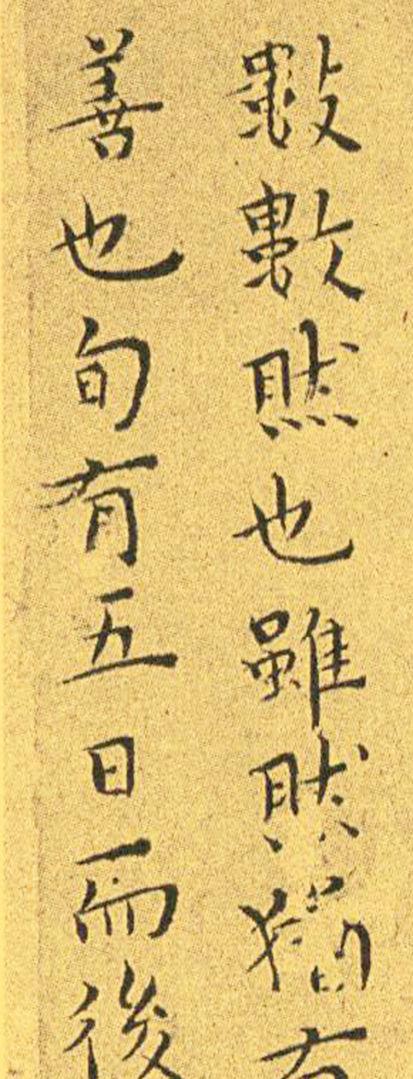 數數然也雖然猶有
善也旬有五日而後